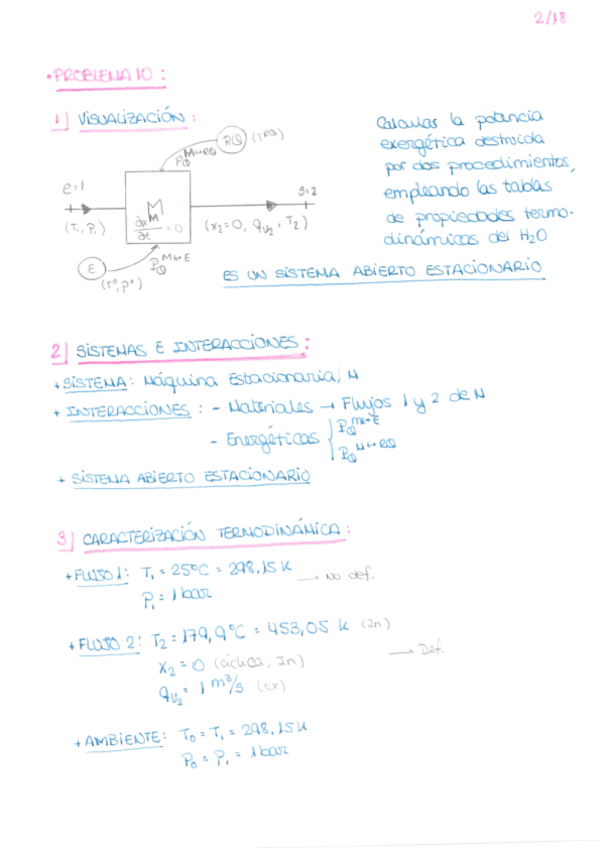 2/18
• PROBLEMA 10 :
1) VISUALIZACIÓN :
Calcular la potencia
exergética destruida
por dos procedimientos,
empleando las tablas
de propiedades termo-
dinámicas del H₂O
RQ (T^RQ)
P_Q^M↔RQ
e=1
M
s=2
(T₁, P₁)
∂x_M/∂t = 0
(x₂=0, q_V₂, T₂)
E
P_Q^M↔E
(T⁰, p⁰)
ES UN SISTEMA ABIERTO ESTACIONARIO
2) SISTEMAS E INTERACCIONES :
+ SISTEMA : Máquina Estacionaria, M
+ INTERACCIONES : - Materiales → Flujos 1 y 2 de M
- Energéticas { P_Q^M↔E
P_Q^M↔RQ
+ SISTEMA ABIERTO ESTACIONARIO
3) CARACTERIZACIÓN TERMODINÁMICA :
+ FLUJO 1 : T₁ = 25ºC = 298,15 K
→ No def.
P₁ = 1 bar
+ FLUJO 2 : T₂ = 179,9ºC = 453,05 K (In)
X₂ = 0 (cíclica, In)
→ Def.
q_V₂ = 1 m³/s (ex)
+ AMBIENTE : T₀ = T₁ = 298,15 K
P₀ = P₁ = 1 bar